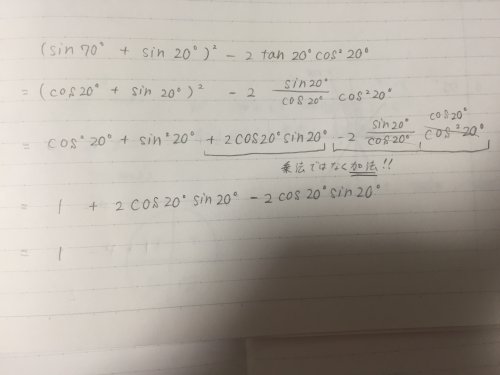 (sin70° + sin20°)² - 2 tan20°cos²20°
= (cos20° + sin20°)² - 2 sin20°/cos20° cos²20°
= cos²20° + sin²20° + 2cos20°sin20° - 2 sin20°/cos20° cos²20° cos20°
乗法ではなく加法!!
= 1 + 2cos20°sin20° - 2cos20°sin20°
= 1